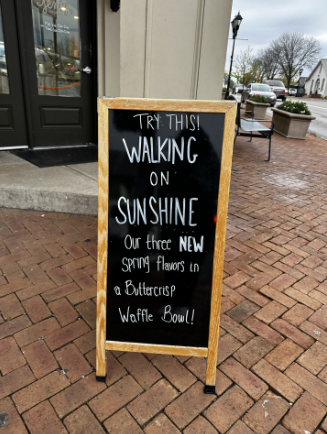 TRY THIS!
WALKING
ON
SUNSHINE
Our three NEW
Spring flavors in
a Buttercrisp
Waffle Bowl!